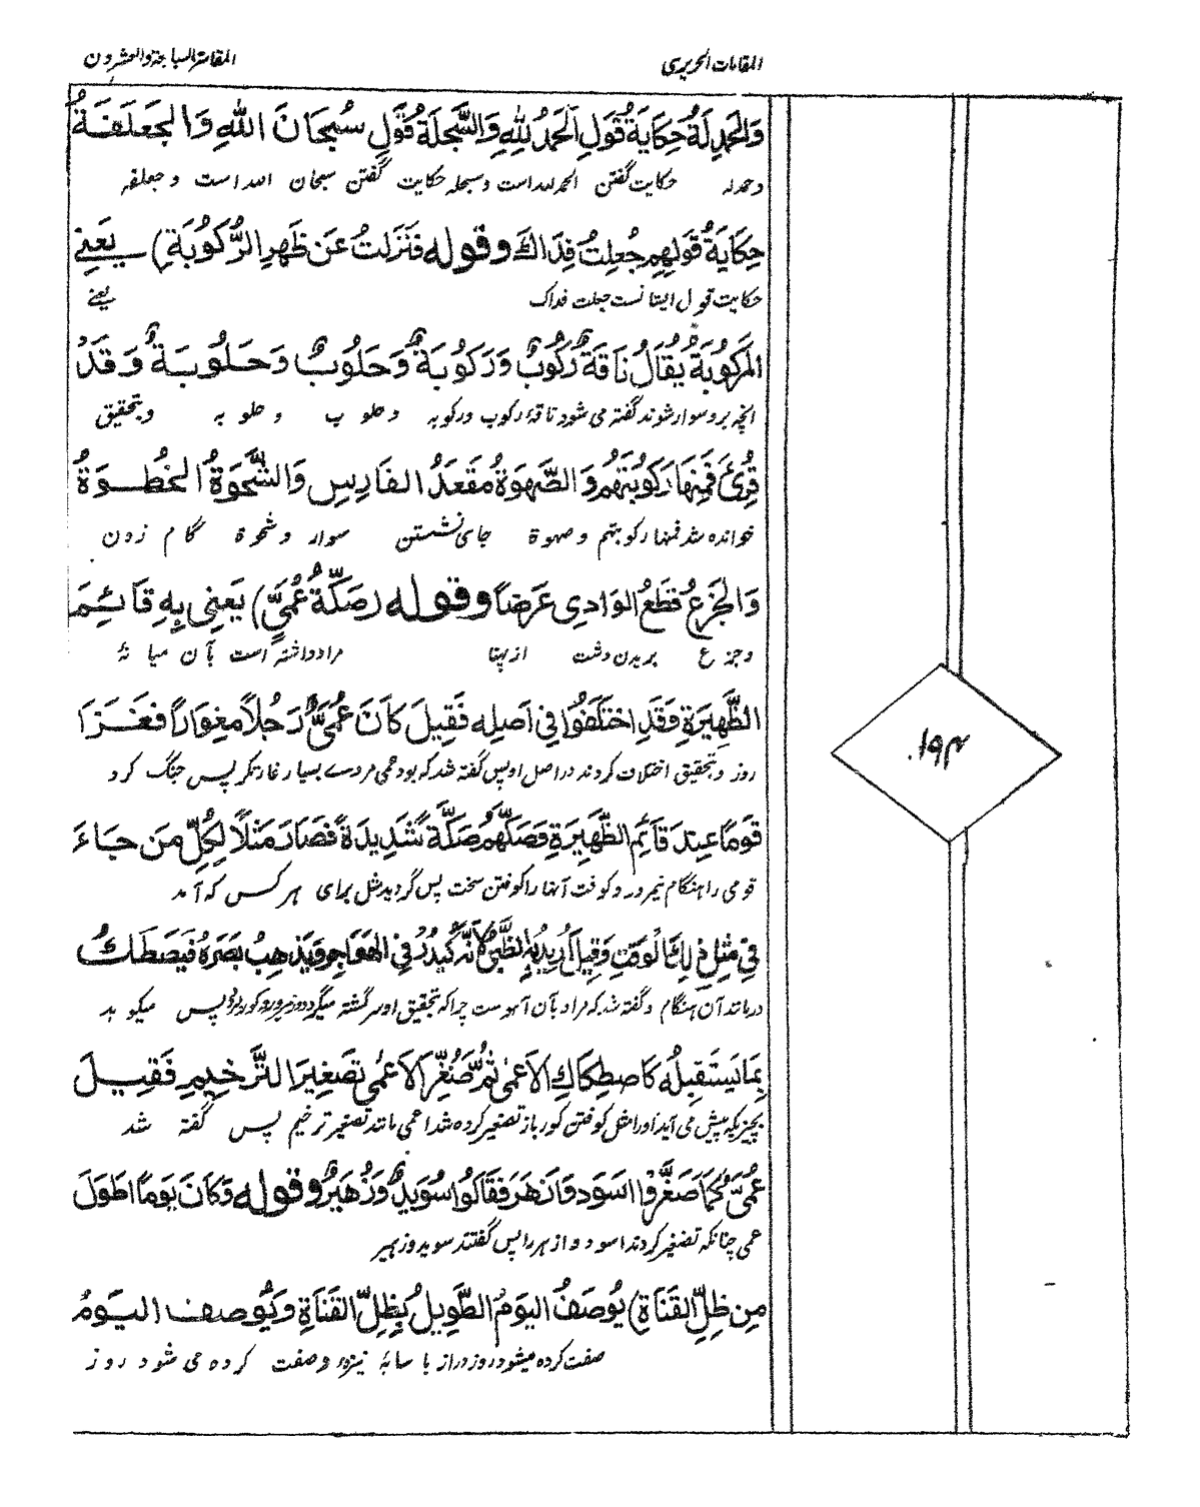 المقامات الحريرى
المقامة السابعة والعشرون
وَالحَمدِلَةُ حِكَايَةُ قَولِ اَلحَمدُ لِلّٰهِ وَالسَّبحَلَةُ قَولُ سُبحَانَ اللهِ وَالجَعلَفَةُ
وحمدله حکایت گفتن الحمدلله است وسبحله حکایت گفتن سبحان الله است وجعلفه
حِكَايَةُ قَولِهِم جُعِلتُ فِدَاكَ وقوله فَنَزَلتُ عَن ظَهرِ الرَّكُوبَةِ) يَعنِي
حکایت قول ایشانست جعلت فداک یعنے
المَركُوبَةُ يُقَالُ نَاقَةٌ رَكُوبٌ وَرَكُوبَةٌ وَحَلُوبٌ وَحَلُوبَةٌ وَقَد
انچه برو سوار شوند گفته می شود ناقۂ رکوب ورکوبه وحلوب وحلوبه وبتحقیق
قُرِئَ فَمِنهَا رَكُوبَتُهُم وَالصَّهوَةُ مَقعَدُ الفَارِسِ وَالشَّحوَةُ الخُطوَةُ
خوانده شد فمنها رکوبتهم وصهوة جای نشستن سوار وشحوة گام زدن
وَالجَزعُ قَطعُ الوَادِى عَرضًا وقوله (صَكَّةُ عُمَيٍّ) يَعنِى بِهِ قَائِمَ
وجزع بریدن دشت از پهنا مراد داشته است بآن میانۂ
الظَّهِيرَةِ وَقَدِ اختَلَفُوا فِى اَصلِهِ فَقِيلَ كَانَ عُمَيٌّ رَجُلًا مِغوَارًا فَغَزَا
روز وبتحقیق اختلاف کردند در اصل او پس گفته شد که بود عمی مردے بسیار غارتگر پس جنگ کرد
قَومًا عِندَ قَائِمِ الظَّهِيرَةِ فَصَكَّهُم صَكَّةً شَدِيدَةً فَصَارَ مَثَلًا لِكُلِّ مَن جَاءَ
قومی را هنگام نیمروز وکوفت آنها را کوفتن سخت پس گردید مثل برای هر کس که آمد
فِى مِثلِ ذٰلِكَ الوَقتِ وَقِيلَ اُرِيدَ بِهِ الظَّبىُ لِاَنَّهُ يَسدَرُ فِى الهَوَاجِرِ وَيَذهَبُ بَصَرُهُ فَيَصطَكُّ
در مانند آن هنگام وگفته شد که مراد بآن آهوست چراکه بتحقیق او سرگشته میگردد در نیمروز پس میکوبد
بِمَا يَستَقبِلُهُ كَاصطِكَاكِ الاَعمٰى ثُمَّ صُغِّرَ الاَعمٰى تَصغِيرَ التَّرخِيمِ فَقِيلَ
بچیزیکه پیش می آید او را مثل کوفتن کور باز تصغیر کرده شد اعمی مانند تصغیر ترخیم پس گفته شد
عُمَيٌّ كَمَا صَغَّرُوا اَسوَد وَاَزهَرَ فَقَالُوا سُوَيدٌ وَزُهَيرٌ وقوله وَكَانَ يَومًا اَطوَلَ
عمی چنانکه تصغیر کردند اسود وازهر را پس گفتند سوید وزهیر
مِن ظِلِّ القَنَاةِ) يُوصَفُ اليَومُ الطَّوِيلُ بِظِلِّ القَنَاةِ وَيُوصف اليَومُ
صفت کرده میشود روز دراز با سایۂ نیزه وصفت کرده می شود روز